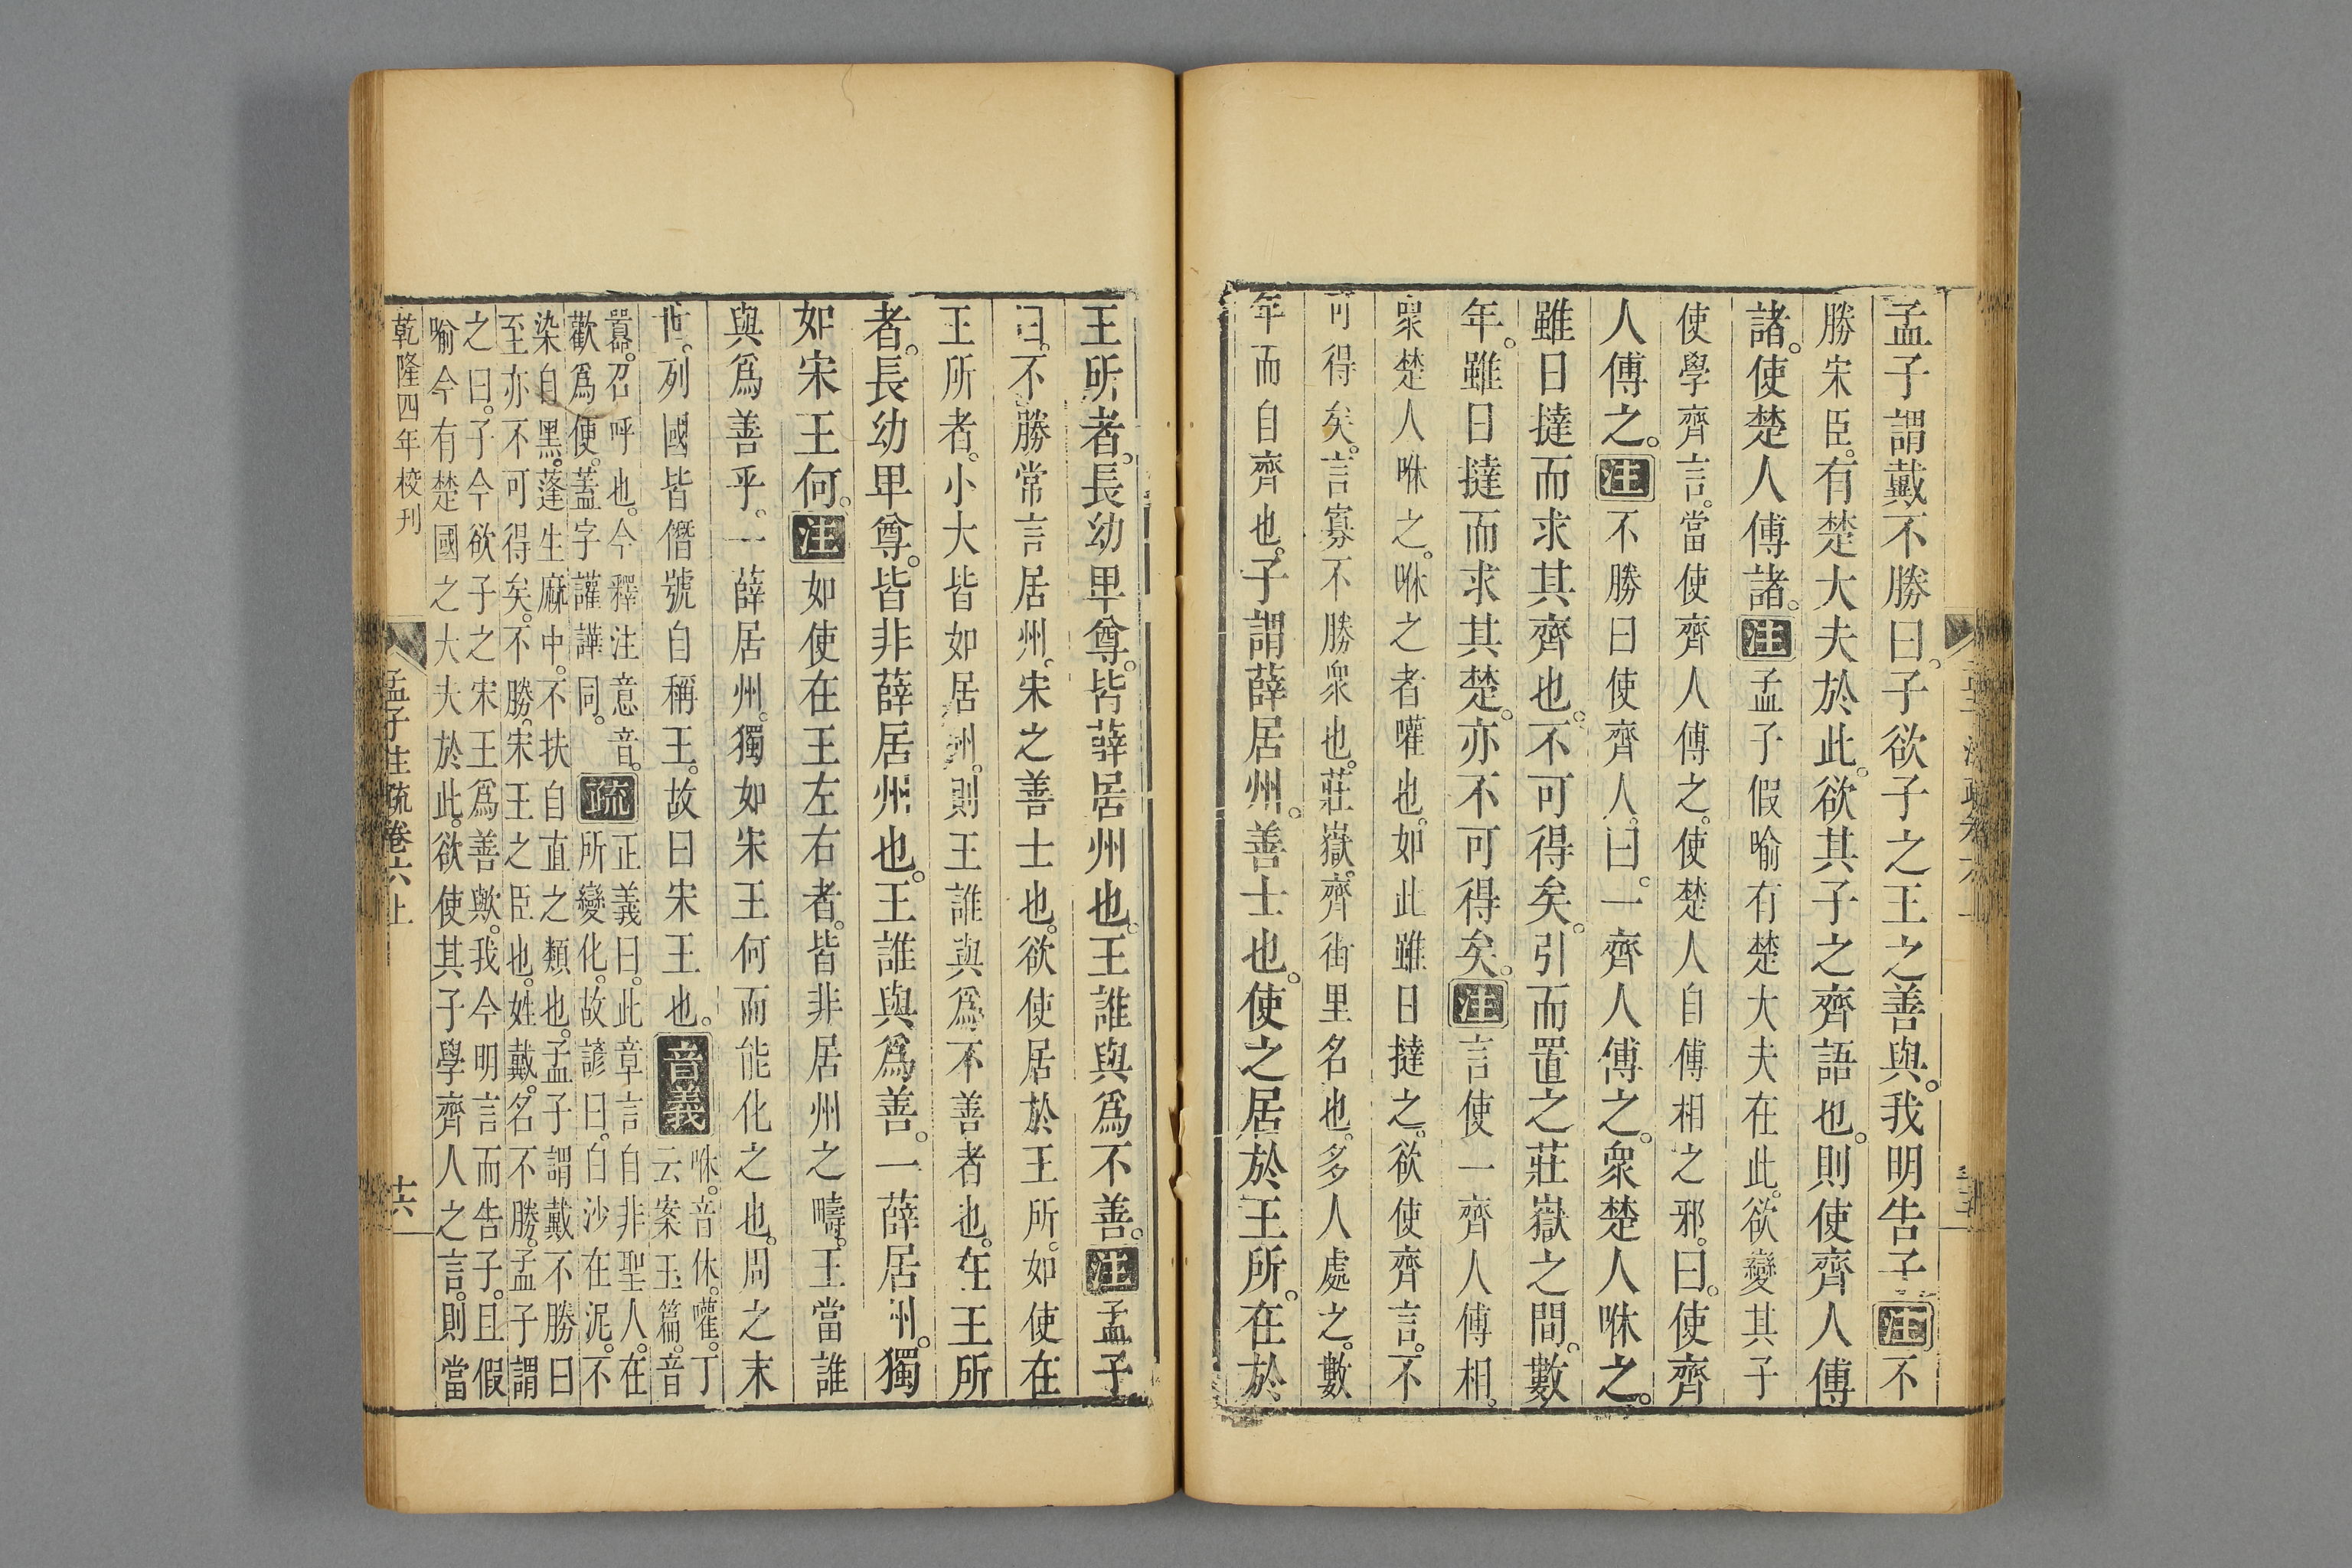 孟子謂戴不勝曰。子欲子之王之善與。我明告子注不
勝宋臣。有楚大夫於此。欲其子之齊語也。則使齊人傅
諸。使楚人傅諸。注孟子假喻有楚大夫在此。欲變其子
使學齊言。當使齊人傅之。使楚人自傅相之邪。曰。使齊
人傅之。注不勝曰使齊人。曰。一齊人傅之。衆楚人咻之。
雖日撻而求其齊也。不可得矣。引而置之莊嶽之間。數
年。雖日撻而求其楚。亦不可得矣。注言使一齊人傅相。
衆楚人咻之。咻之者嚾也。如此雖日撻之。欲使齊言。不
可得矣。言寡不勝衆也。莊嶽。齊街里名也。多人處之。數
年而自齊也。子謂薛居州。善士也。使之居於王所。在於
王所者。長幼卑尊。皆薛居州也。王誰與爲不善。注孟子
曰。不勝常言居州。宋之善士也。欲使居於王所。如使在
王所者。小大皆如居州。則王誰與爲不善者也。在王所
者。長幼卑尊。皆非薛居州也。王誰與爲善。一薛居州。獨
如宋王何。注如使在王左右者。皆非居州之疇。王當誰
與爲善乎。一薛居州。獨如宋王何而能化之也。周之末
世。列國皆僭號自稱王。故曰宋王也。音義咻。音休。嚾。丁
云案玉篇。音
囂。召呼也。今釋注意音。
歡爲便。蓋字讙譁同。疏正義曰。此章言自非聖人。在
所變化。故諺曰。白沙在泥。不
染自黑。蓬生麻中。不扶自直之類也。孟子謂戴不勝曰
至亦不可得矣。不勝。宋王之臣也。姓戴。名不勝。孟子謂
之曰。子今欲子之宋王爲善歟。我今明言而告子。且假
喻今有楚國之大夫於此。欲使其子學齊人之言。則當
乾隆四年校刊
孟子注疏卷六上
十六